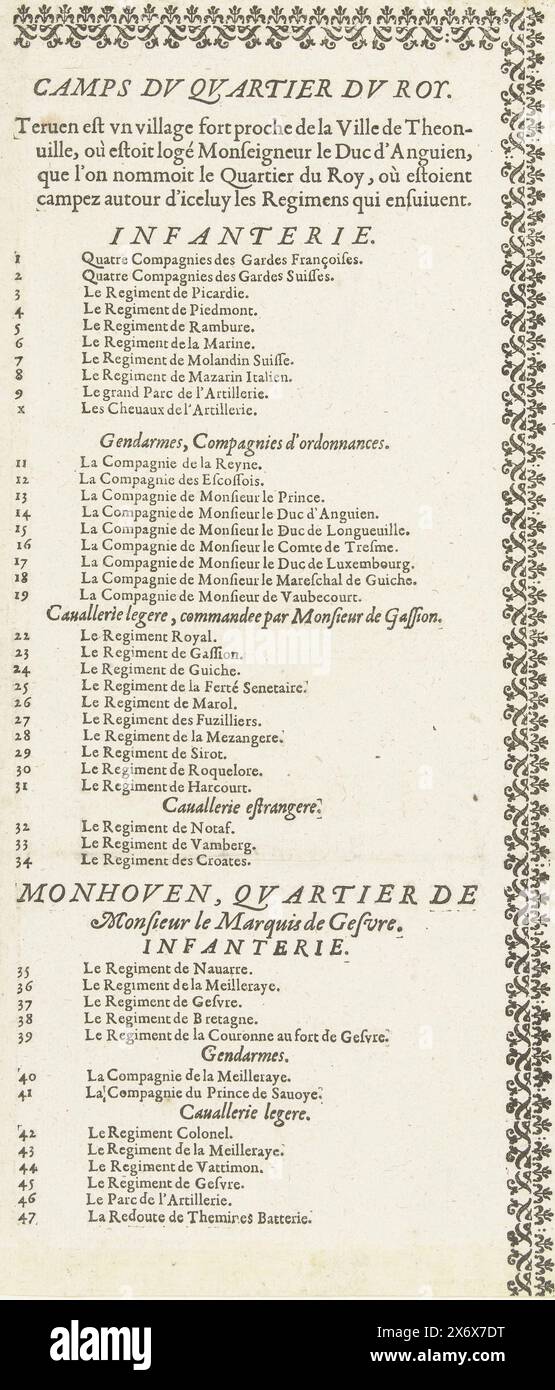 CAMPS DV QVARTIER DV ROY.
Teruen eſt vn village fort proche de la Ville de Theon-
uille, où eſtoit logé Monſeigneur le Duc d'Anguien,
que l'on nommoit le Quartier du Roy, où eſtoient
campez autour d'iceluy les Regimens qui enſuiuent.
INFANTERIE.
1 Quatre Compagnies des Gardes Françoiſes.
2 Quatre Compagnies des Gardes Suiſſes.
3 Le Regiment de Picardie.
4 Le Regiment de Piedmont.
5 Le Regiment de Rambure.
6 Le Regiment de la Marine.
7 Le Regiment de Molandin Suiſſe.
8 Le Regiment de Mazarin Italien.
9 Le grand Parc de l'Artillerie.
x Les Cheuaux de l'Artillerie.
Gendarmes, Compagnies d'ordonnances.
11 La Compagnie de la Reyne.
12 La Compagnie des Eſcoſſois.
13 La Compagnie de Monſieur le Prince.
14 La Compagnie de Monſieur le Duc d'Anguien.
15 La Compagnie de Monſieur le Duc de Longueuille.
16 La Compagnie de Monſieur le Comte de Treſme.
17 La Compagnie de Monſieur le Duc de Luxembourg.
18 La Compagnie de Monſieur le Mareſchal de Guiche.
19 La Compagnie de Monſieur de Vaubecourt.
Cauallerie legere, commandee par Monſieur de Gaſſion.
22 Le Regiment Royal.
23 Le Regiment de Gaſſion.
24 Le Regiment de Guiche.
25 Le Regiment de la Ferté Senetaire.
26 Le Regiment de Marol.
27 Le Regiment des Fuzilliers.
28 Le Regiment de la Mezangere.
29 Le Regiment de Sirot.
30 Le Regiment de Roquelore.
31 Le Regiment de Harcourt.
Cauallerie eſtrangere.
32 Le Regiment de Notaf.
33 Le Regiment de Vamberg.
34 Le Regiment des Croates.
MONHOVEN, QVARTIER DE
Monſieur le Marquis de Geſvre.
INFANTERIE.
35 Le Regiment de Nauarre.
36 Le Regiment de la Meilleraye.
37 Le Regiment de Geſvre.
38 Le Regiment de Bretagne.
39 Le Regiment de la Couronne au fort de Geſvre.
Gendarmes.
40 La Compagnie de la Meilleraye.
41 La Compagnie du Prince de Sauoye.
Cauallerie legere.
42 Le Regiment Colonel.
43 Le Regiment de la Meilleraye.
44 Le Regiment de Vattimon.
45 Le Regiment de Geſvre.
46 Le Parc de l'Artillerie.
47 La Redoute de Themines Batterie.
alamy
alamy
Image ID: 2X6X7DT
www.alamy.com